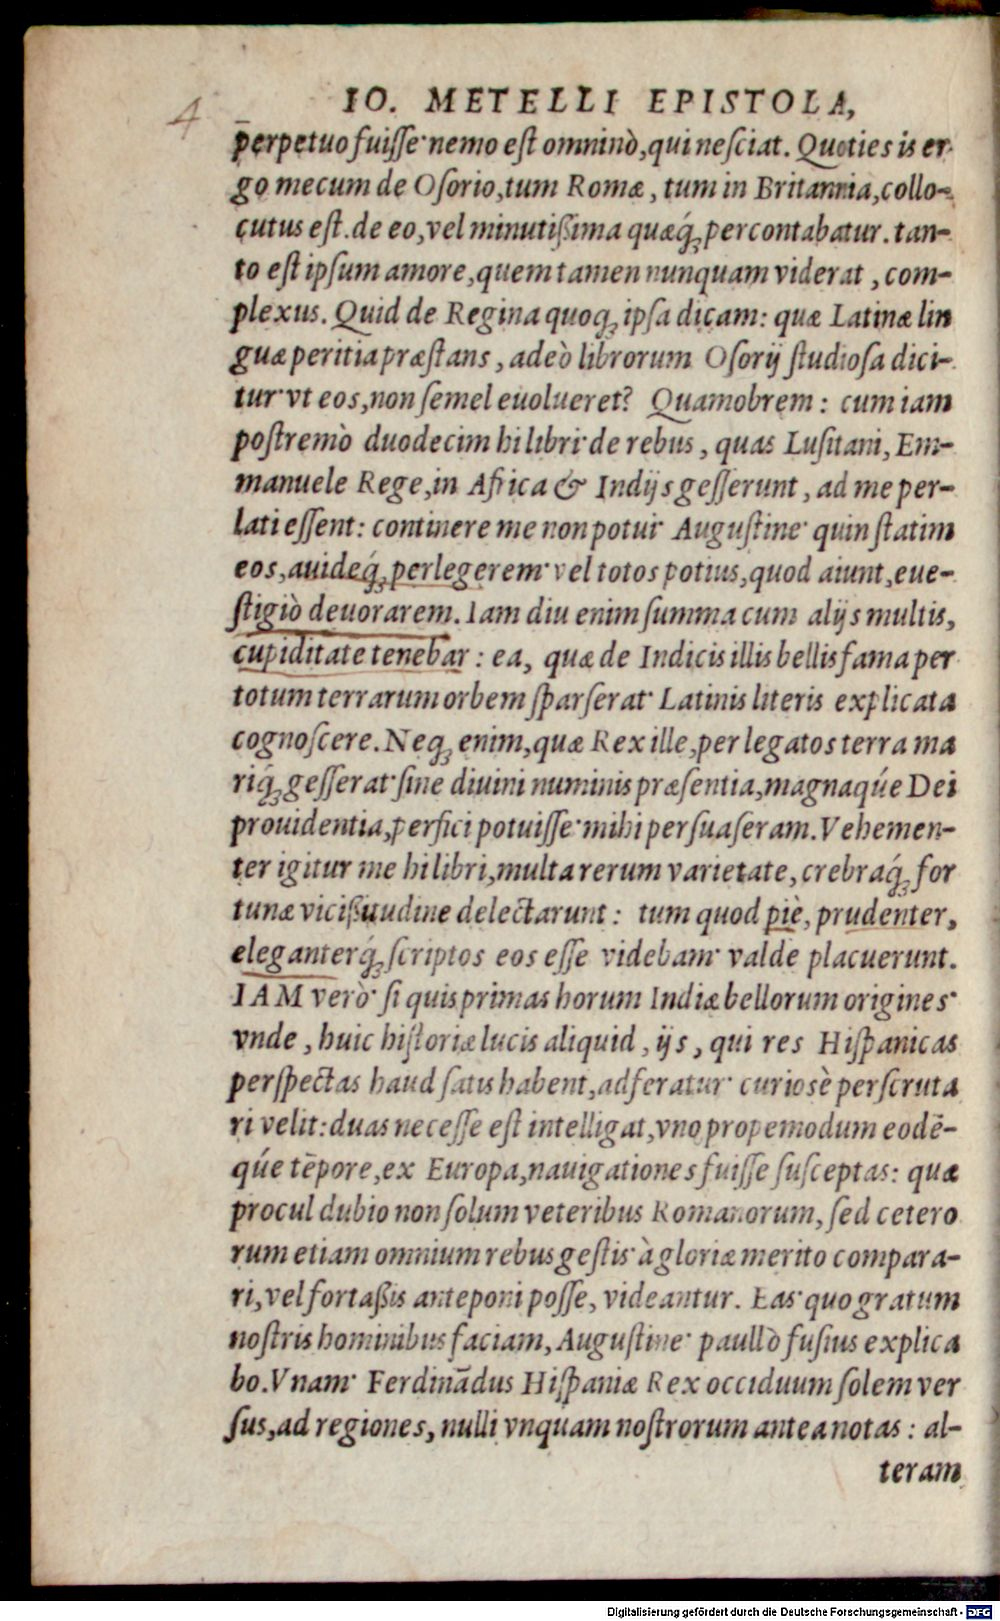 4
IO. METELLI EPISTOLA,
perpetuo fuisse nemo est omninò, qui nesciat. Quoties is er-
go mecum de Osorio, tum Romæ, tum in Britannia, collo-
cutus est. de eo, vel minutißima quæq́; percontabatur. tan-
to est ipsum amore, quem tamen nunquam viderat, com-
plexus. Quid de Regina quoq; ipsa dicam: quæ Latinæ lin
guæ peritia præstans, adeò librorum Osorij studiosa dici-
tur vt eos, non semel euolueret? Quamobrem: cum iam
postremò duodecim hi libri de rebus, quas Lusitani, Em-
manuele Rege, in Africa & Indijs gesserunt, ad me per-
lati essent: continere me non potui Augustine quin statim
eos, auideq́; perlegerem vel totos potius, quod aiunt, eue-
stigiò deuorarem. Iam diu enim summa cum alijs multis,
cupiditate tenebar: ea, quæ de Indicis illis bellis fama per
totum terrarum orbem sparserat Latinis literis explicata
cognoscere. Neq; enim, quæ Rex ille, per legatos terra ma
riq́; gesserat sine diuini numinis præsentia, magnaqúe Dei
prouidentia, perfici potuisse mihi persuaseram. Vehemen-
ter igitur me hi libri, multa rerum varietate, crebraq́; for
tunæ vicißitudine delectarunt: tum quod piè, prudenter,
eleganterq́; scriptos eos esse videbam valde placuerunt.
IAM verò si quis primas horum Indiæ bellorum origines
vnde, huic historiæ lucis aliquid, ijs, qui res Hispanicas
perspectas haud satis habent, adferatur curiosè perscruta
ri velit: duas necesse est intelligat, vno propemodum eodē-
qúe tēpore, ex Europa, nauigationes fuisse susceptas: quæ
procul dubio non solum veteribus Romanorum, sed cetero
rum etiam omnium rebus gestis à gloriæ merito compara-
ri, vel fortaßis anteponi posse, videantur. Eas quo gratum
nostris hominibus faciam, Augustine paullò fusius explica
bo. Vnam Ferdinādus Hispaniæ Rex occiduum solem ver
sus, ad regiones, nulli vnquam nostrorum antea notas: al-
teram
Digitalisierung gefördert durch die Deutsche Forschungsgemeinschaft - DFG